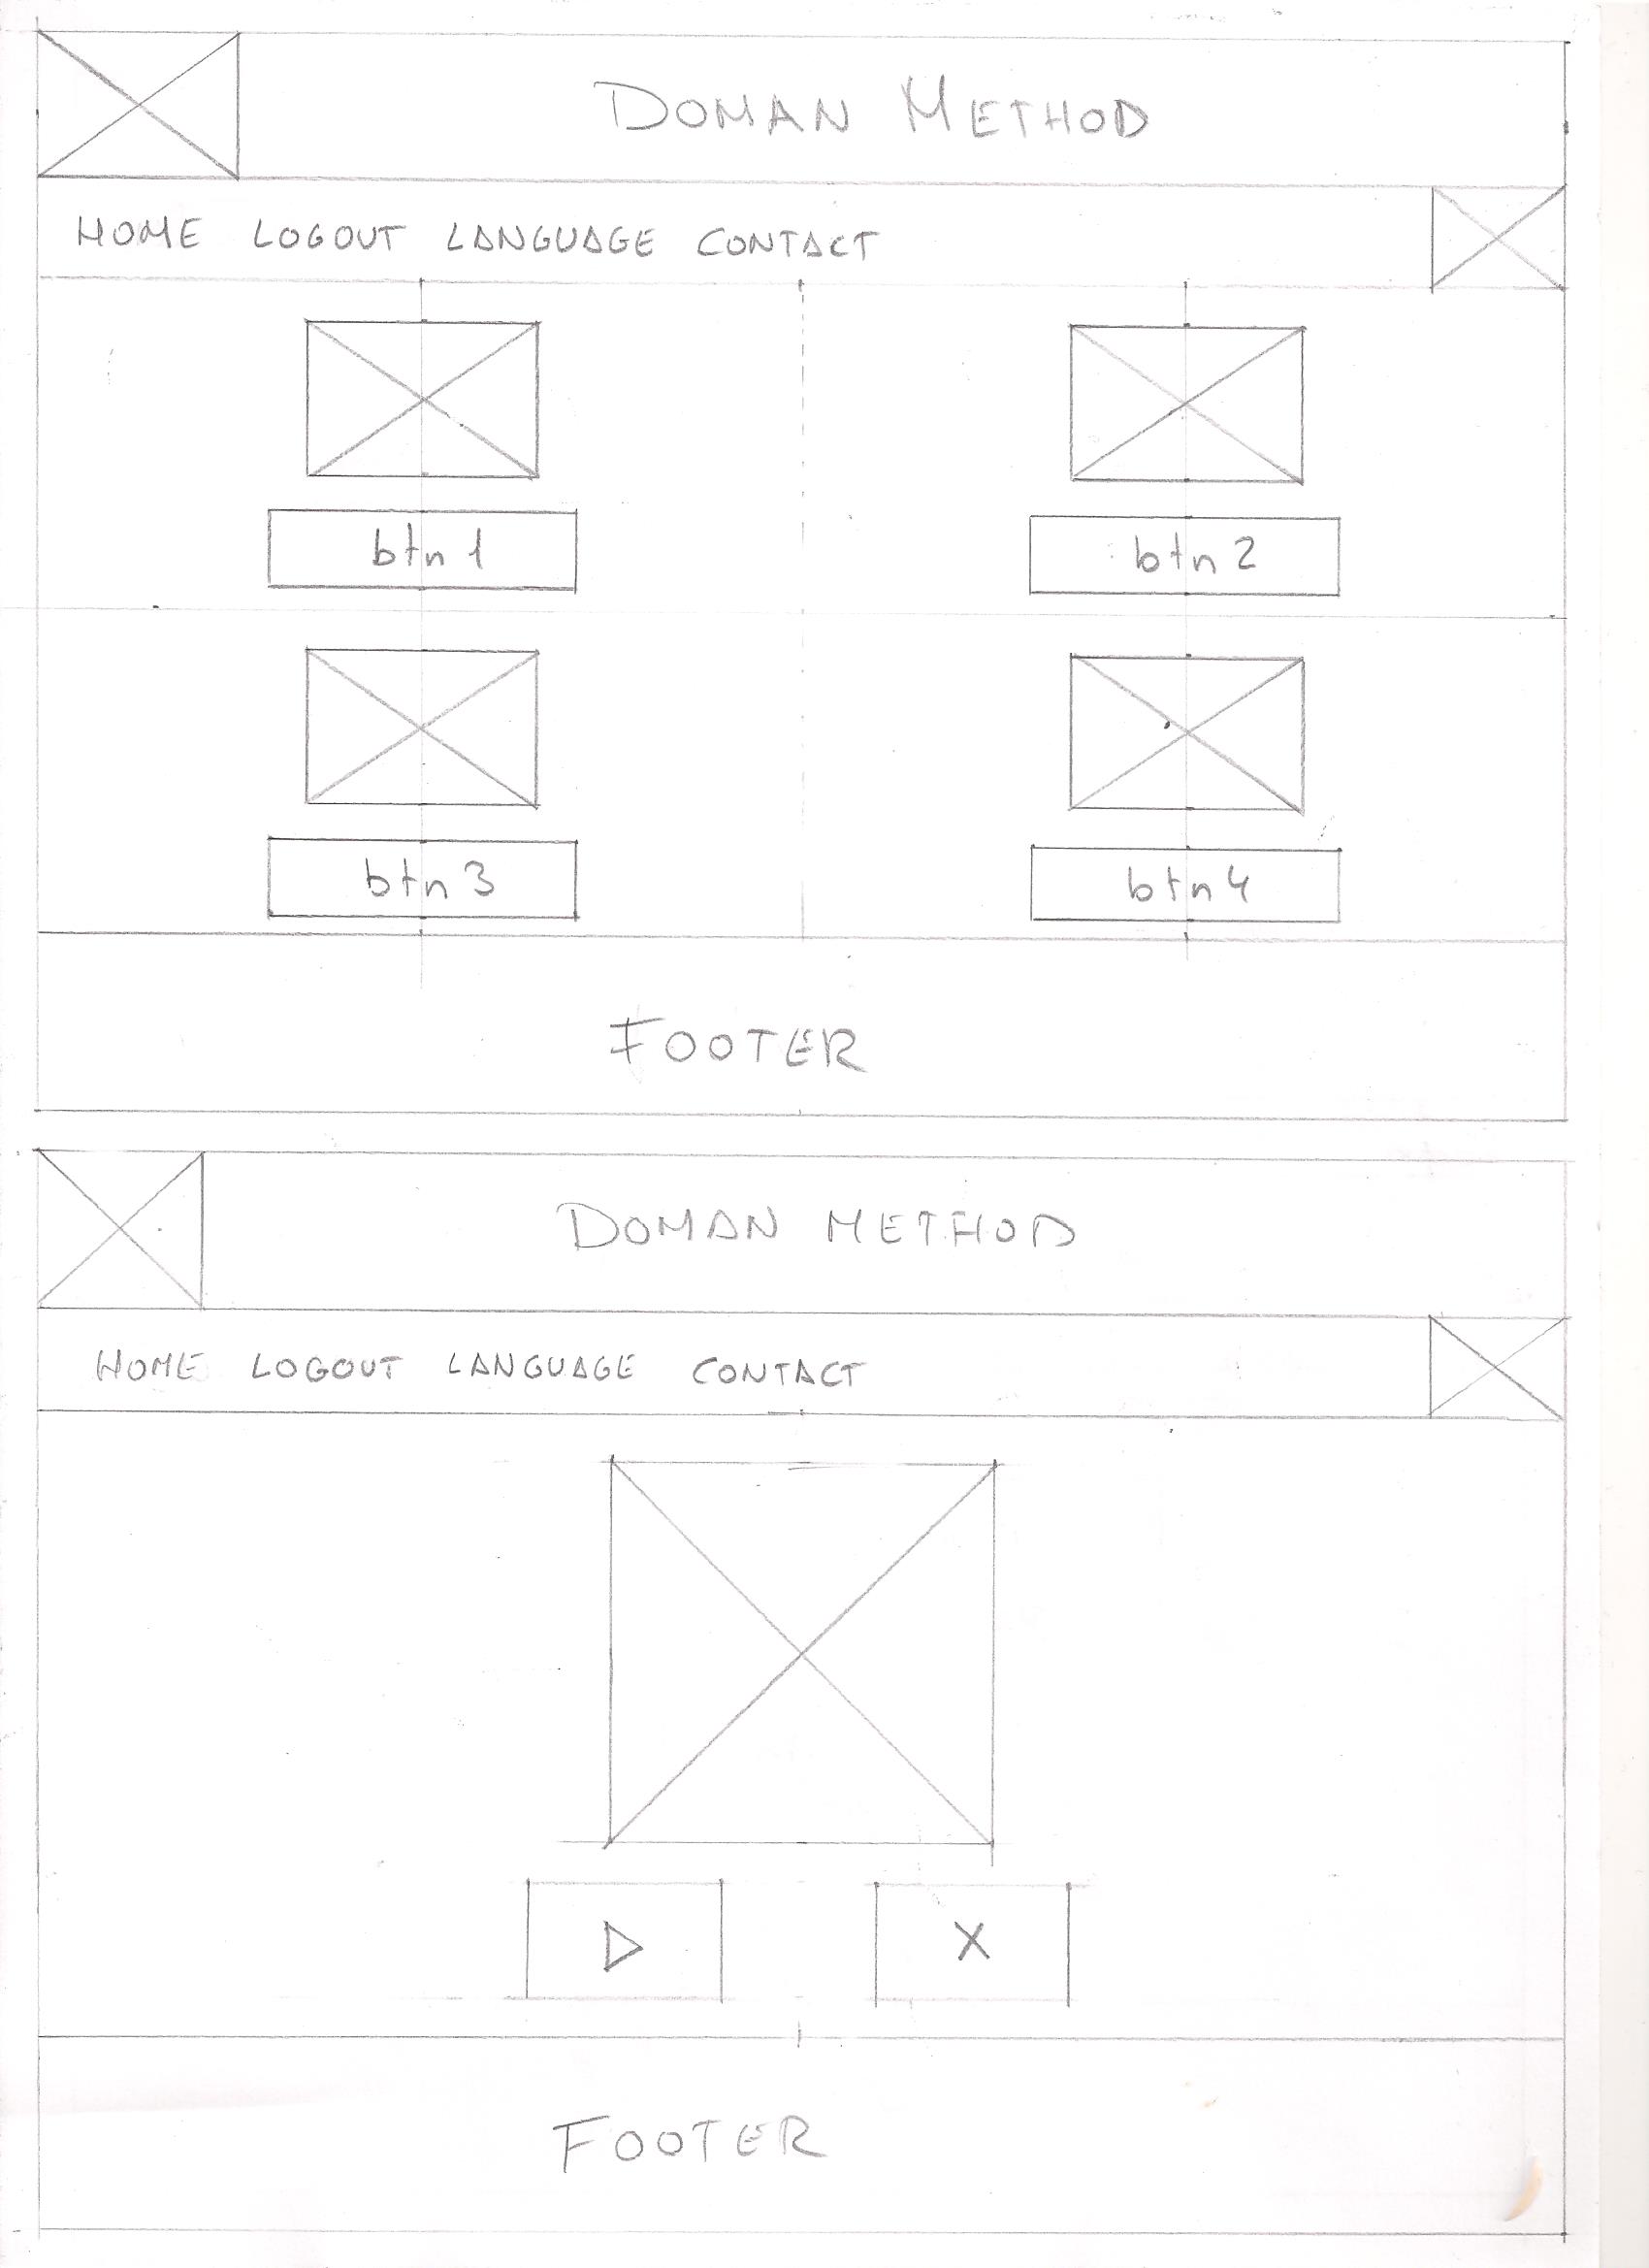 DOMAN METHOD
HOME LOGOUT LANGUAGE CONTACT
btn 1 btn 2
btn 3 btn 4
FOOTER
DOMAN METHOD
HOME LOGOUT LANGUAGE CONTACT
X
FOOTER